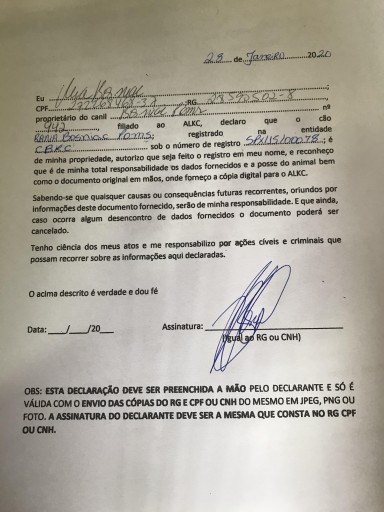 28 de Janeiro 2020
Eu
CPF RG
proprietário do canil Bosniac Poms nº
942 filiado ao ALKC, declaro que o cão
Bosniac Poms, registrado na entidade
CBKC sob o número de registro ; é
de minha propriedade, autorizo que seja feito o registro em meu nome, e reconheço
que é de minha total responsabilidade os dados fornecidos e a posse do animal bem
como o documento original em mãos, onde forneço a cópia digital para o ALKC.
Sabendo-se que quaisquer causas ou consequências futuras recorrentes, oriundos por
informações deste documento fornecido, serão de minha responsabilidade. E que ainda,
caso ocorra algum desencontro de dados fornecidos o documento poderá ser
cancelado.
Tenho ciência dos meus atos e me responsabilizo por ações cíveis e criminais que
possam recorrer sobre as informações aqui declaradas.
O acima descrito é verdade e dou fé
Data:____/____/20___ Assinatura:
(Igual ao RG ou CNH)
OBS: ESTA DECLARAÇÃO DEVE SER PREENCHIDA A MÃO PELO DECLARANTE E SÓ É
VÁLIDA COM O ENVIO DAS CÓPIAS DO RG E CPF OU CNH DO MESMO EM JPEG, PNG OU
FOTO. A ASSINATURA DO DECLARANTE DEVE SER A MESMA QUE CONSTA NO RG CPF
OU CNH.